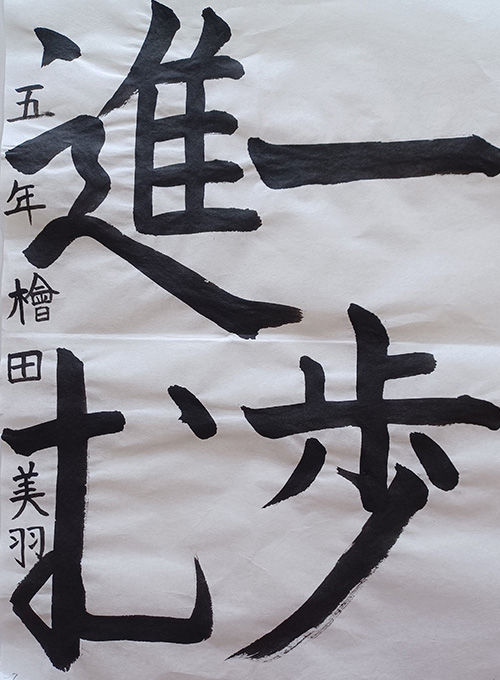 一歩
進む
五年檜田美羽